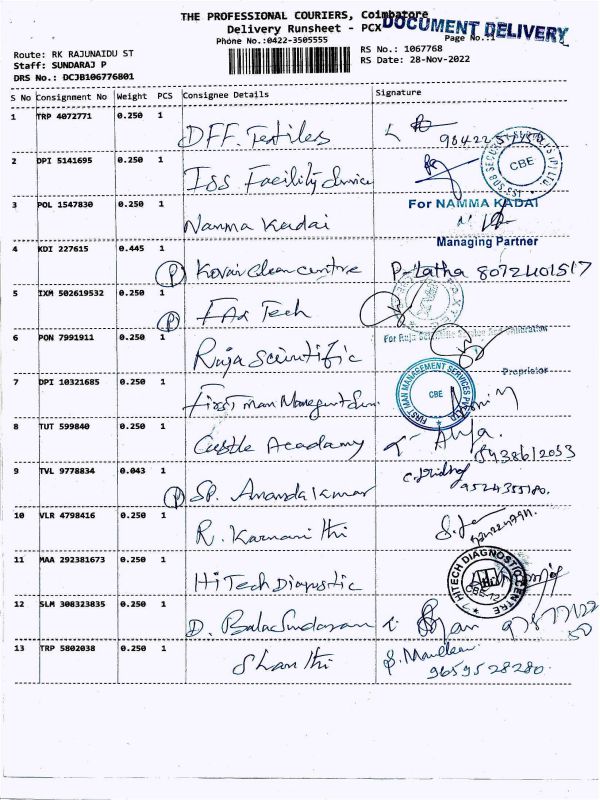 THE PROFESSIONAL COURIERS, Coimbatore
Delivery Runsheet - PCX
DOCUMENT DELIVERY
Phone No.:0422-3505555
Page No.:1
Route: RK RAJUNAIDU ST
RS No.: 1067768
Staff: SUNDARAJ P
RS Date: 28-Nov-2022
DRS No.: DCJB106776801
S No Consignment No Weight PCS Consignee Details Signature
1 TRP 4072771 0.250 1 DFF. Textiles
2 DPI 5141695 0.250 1 Iss Facility Service
CBE
3 POL 1547830 0.250 1 Namma Kadai
For NAMMA KADAI
Managing Partner
4 KDI 227615 0.445 1 P Kovai Clean centre P. Latha 8072401517
5 IXM 502619532 0.250 1 P FAX Tech
6 PON 7991911 0.250 1 Raja Scientific
Proprietor
7 DPI 10321685 0.250 1 First man Management Ser.
FIRST MAN MANAGEMENT SERVICES PVT LTD
CBE
8 TUT 599840 0.250 1 Castle Academy
9 TVL 9778834 0.043 1 P SP. Anandakumar
10 VLR 4798416 0.250 1 R.
11 MAA 292381673 0.250 1 HiTech Diagnostic
HITECH DIAGNOSTIC CENTRE
CBE-12
12 SLM 308323835 0.250 1 D. Balasundaram
13 TRP 5802038 0.250 1 Shanthi
9659528280